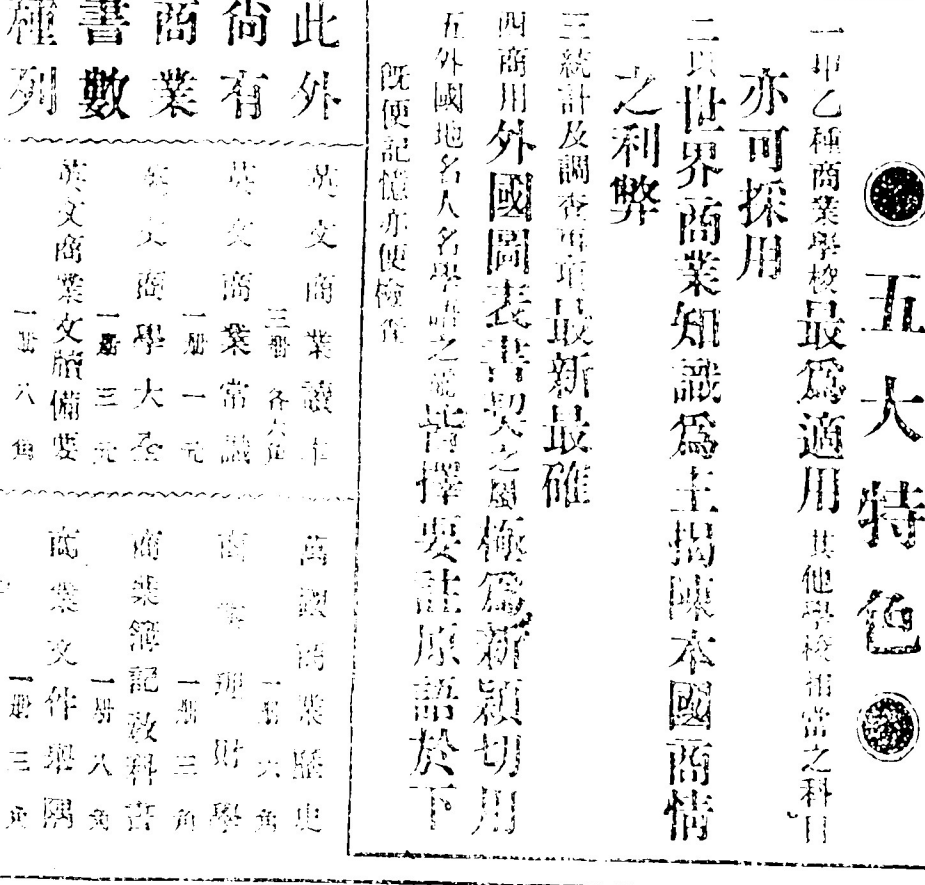 五大特色
一 甲乙種商業學校最爲適用其他學校相當之科目
亦可採用
二 以世界商業知識爲主揭陳本國商情
之利弊
三 統計及調查事項最新最確
四 商用外國圖表書契之屬極爲新穎切用
五 外國地名人名學語之類皆擇要註原語於下
既便記憶亦便檢查
此外
尙有
商業
書數
種列
英文商業讀本
三册 各六角
英文商業常識
一册 一元
英文商學大全
一册 三元
英文商業文牘備要
一册 八角
萬國商業歷史
一册 六角
商業理財學
一册 三角
商業簿記敎科書
一册 八角
商業文件舉隅
一册 三角